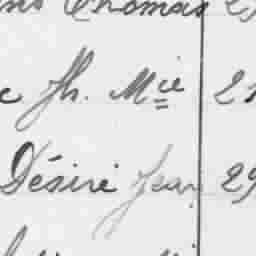 Thomas 2
Jh. Mcie 2
Désiré Jean 29